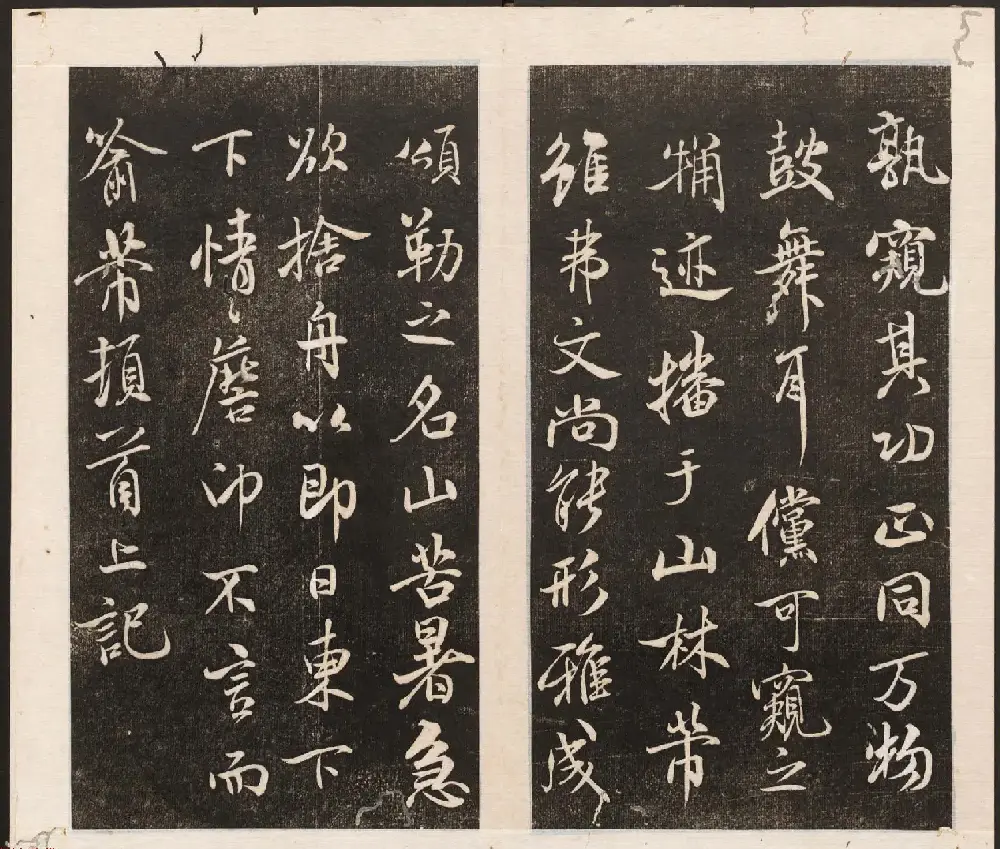 孰窺其功正同万物
鼓舞耳儻可窺之
牗迹播于山林芾
雖弗文尚能形雅成
頌勒之名山苦暑急
欲捨舟以即日東下
下情〻卬不言而
俞芾頓首上記